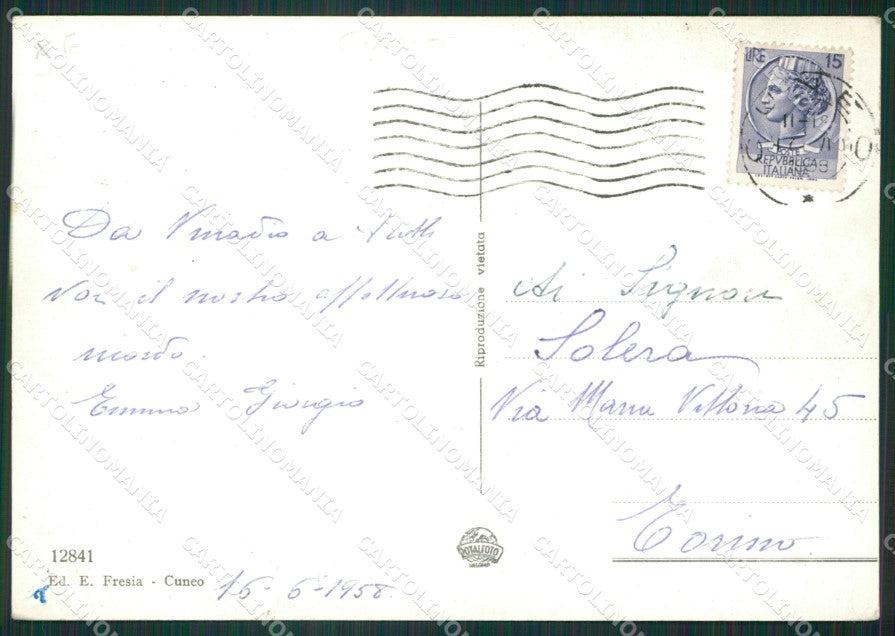 LIRE 15
POSTE
REPVBBLICA
ITALIANA
Da Vinadio a tutti
Voi il nostro affettuoso
ricordo.
Emma Giorgio
Riproduzione vietata
Ai Signori
Solera
Via Maria Vittoria 45
Torino
12841
Ed. E. Fresia - Cuneo
16-6-1958
ROTALFOTO
CARTOLINOMANIA